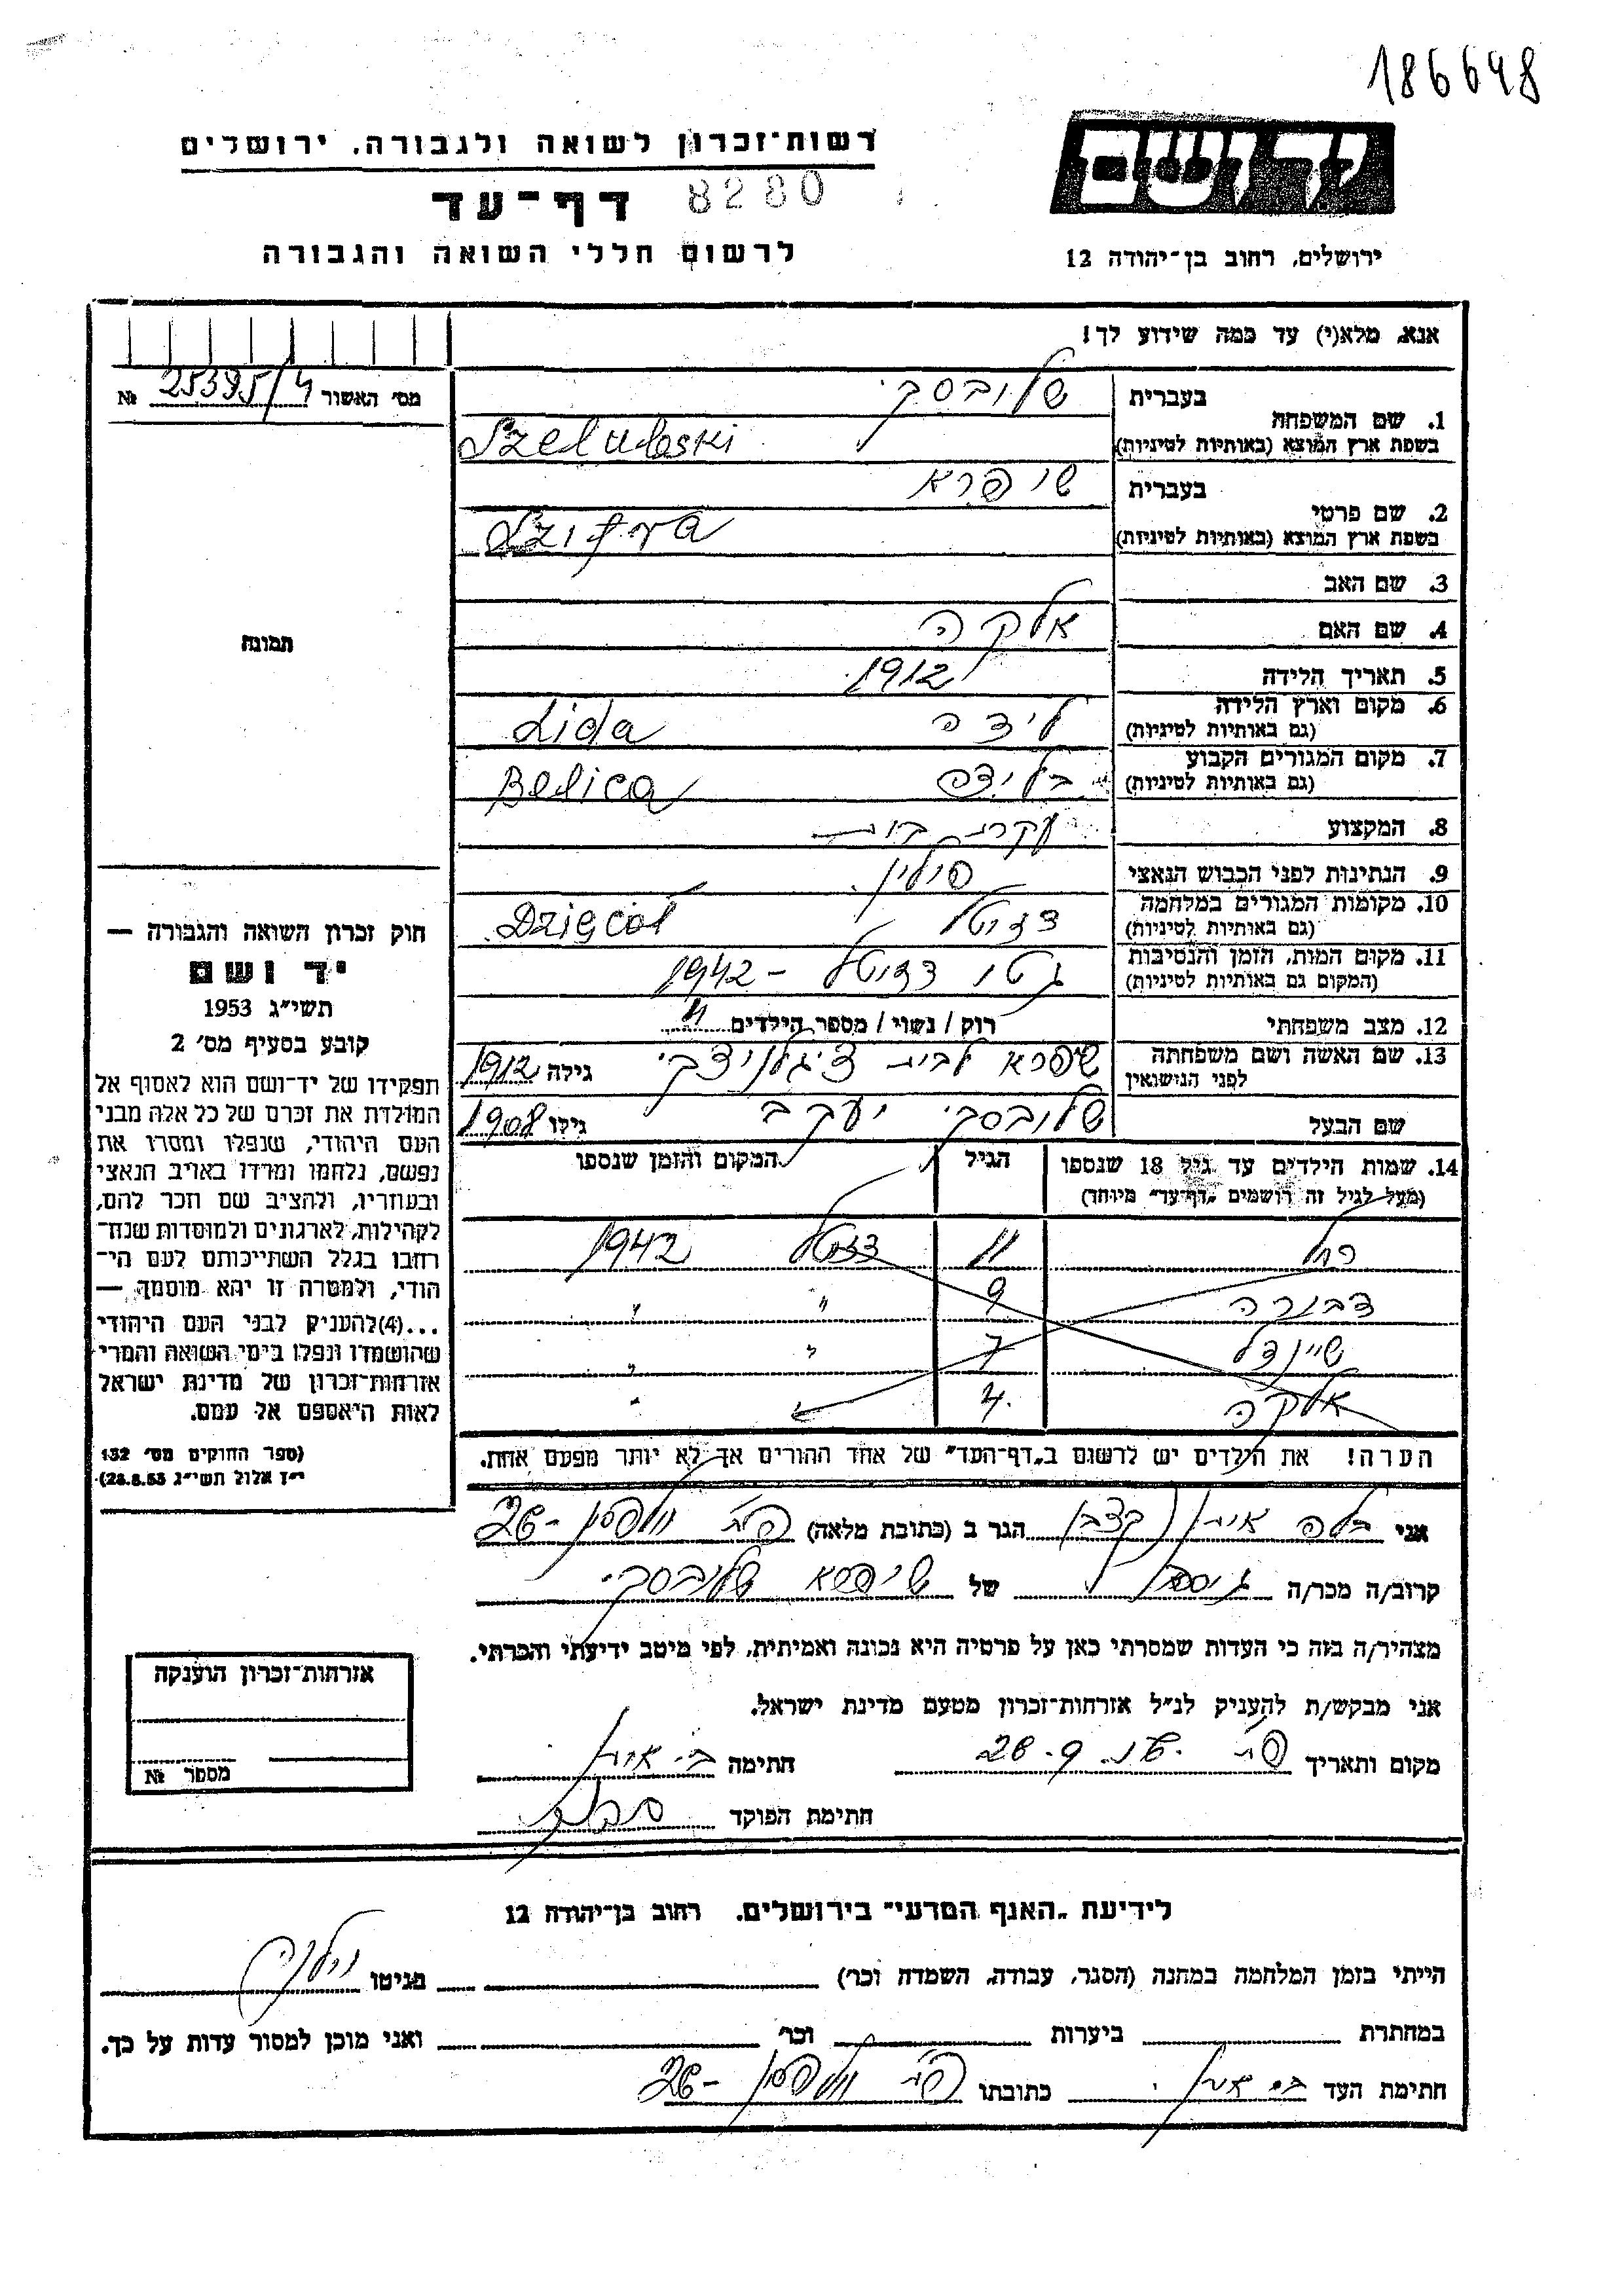 186648
יד ושם
רשות־זכרון לשואה ולגבורה, ירושלים
דף־עד 8280
לרשום חללי השואה והגבורה
ירושלים, רחוב בן־יהודה 12
אנא, מלא(י) עד כמה שידוע לך!
מס׳ האשור 25395/4 №
1. שם המשפחה
בעברית שלובסקי
בשפת ארץ המוצא (באותיות לטיניות) Szelubski
2. שם פרטי
בעברית שיפרא
בשפת ארץ המוצא (באותיות לטיניות) Szifra
3. שם האב
4. שם האם אלקה
5. תאריך הלידה 1912
6. מקום וארץ הלידה לידה Lida
(גם באותיות לטיניות)
7. מקום המגורים הקבוע Belica
(גם באותיות לטיניות)
8. המקצוע עקרת בית
9. הנתינות לפני הכבוש הנאצי פולין
10. מקומות המגורים במלחמה Dzięcioł
(גם באותיות לטיניות)
11. מקום המות, הזמן והנסיבות גטו 1942 -
(המקום גם באותיות לטיניות)
12. מצב משפחתי רוק / נשוי / מספר הילדים 4
13. שם האשה ושם משפחתה שיפרא לבית גילה 1912
לפני הנישואין
שם הבעל שלובסקי יעקב גילו 1908
14. שמות הילדים עד גיל 18 שנספו הגיל המקום והזמן שנספו
(מעל לגיל זה רושמים „דף־עד״ מיוחד)
רחל 11 1942
דבורה 9 " "
שיינדל 7 " "
אלקה 4 " "
הערה! את הילדים יש לרשום ב„דף־העד״ של אחד ההורים אך לא יותר מפעם אחת.
תמונה
חוק זכרון השואה והגבורה —
יד ושם
תשי״ג 1953
קובע בסעיף מס׳ 2
תפקידו של יד־ושם הוא לאסוף אל
המולדת את זכרם של כל אלה מבני
העם היהודי, שנפלו ומסרו את
נפשם, נלחמו ומרדו באויב הנאצי
ובעוזריו, ולהציב שם וזכר להם,
לקהילות, לארגונים ולמוסדות שנח־
רחבו בגלל השתייכותם לעם הי־
הודי, ולמטרה זו יהא מוסמך —
...(4)להעניק לבני העם היהודי
שהושמדו ונפלו בימי השואה והמרי
אזרחות־זכרון של מדינת ישראל
לאות היאספם אל עמם.
(ספר החוקים מס׳ 132
י״ז אלול תשי״ג 28.8.53)
אני הגר ב (כתובת מלאה)
קרוב/ה מכר/ה של שיפרא שלובסקי
מצהיר/ה בזה כי העדות שמסרתי כאן על פרטיה היא נכונה ואמיתית, לפי מיטב ידיעתי והכרתי.
אני מבקש/ת להעניק לנ״ל אזרחות־זכרון מטעם מדינת ישראל.
מקום ותאריך חתימה
חתימת הפוקד
אזרחות־זכרון הוענקה
מספר №
לידיעת „האגף המדעי״ בירושלים, רחוב בן־יהודה 12
הייתי בזמן המלחמה במחנה (הסגר, עבודה, השמדה וכר׳) בגיטו וילנה
במחתרת ביערות וכר׳ ואני מוכן למסור עדות על כך.
חתימת העד כתובתו